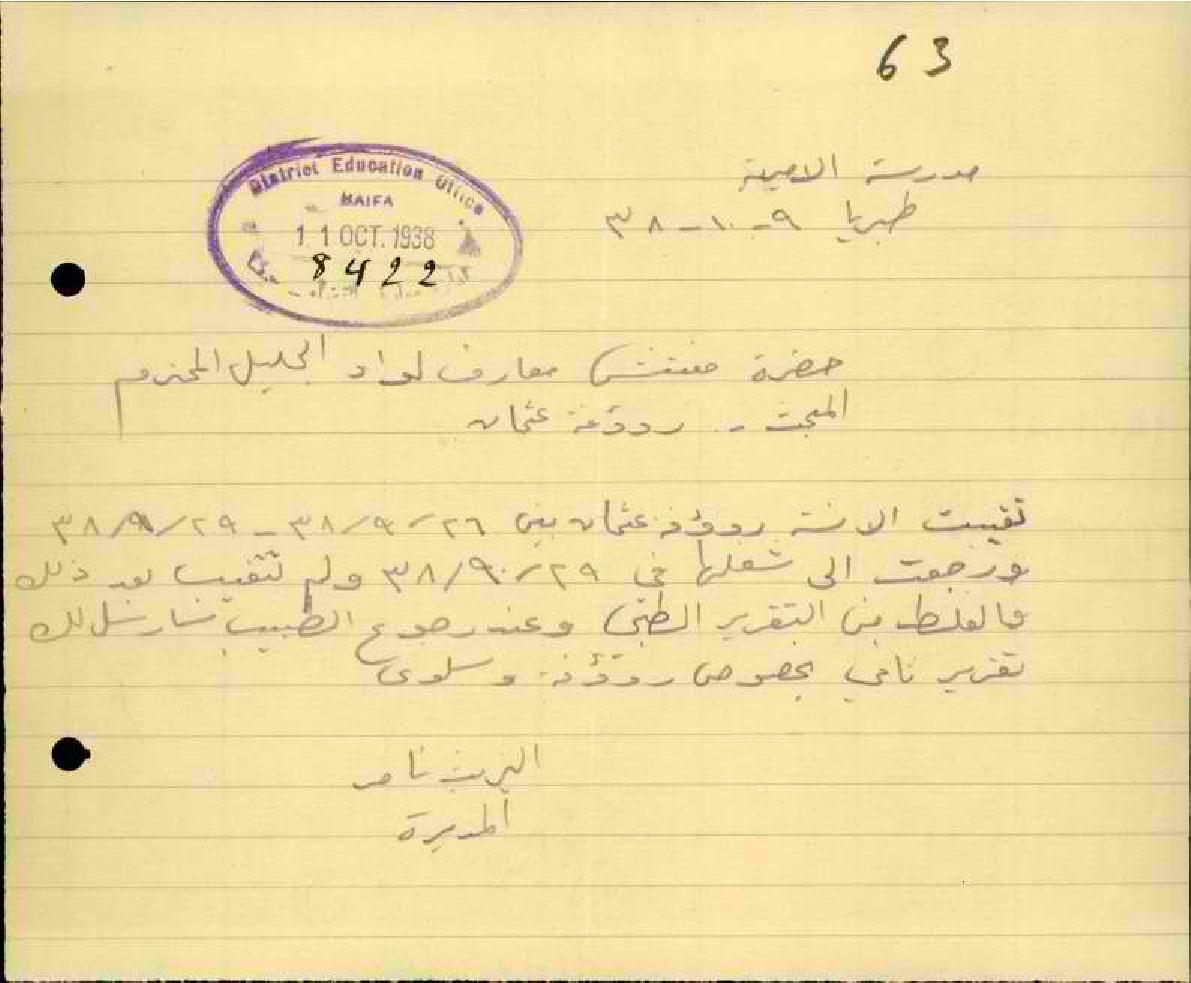 63
مدرسة الاميرية
طبريا ٩-١٠-٣٨
District Education Office
HAIFA
11 OCT. 1938
8422
حضرة مفتش معارف لواء الجليل المحترم
المبحث - رؤوفة عثمان
تغيبت الانسة رؤوفة عثمان بين ٢٦/٩/٣٨ - ٢٩/٩/٣٨
ورجعت الى شغلها في ٢٩/٩/٣٨ ولم تتغيب بعد ذلك
فالغلط من التقرير الطبي وعند رجوع الطبيب سارسل لك
تقرير ثاني بخصوص رؤوفة وسلوى
اليزبث ناصر
المديرة